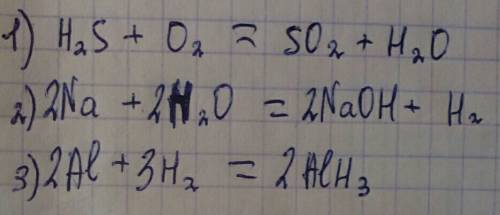 1) H₂S + O₂ = SO₂ + H₂O
2) 2Na + 2H₂O = 2NaOH + H₂
3) 2Al + 3H₂ = 2AlH₃